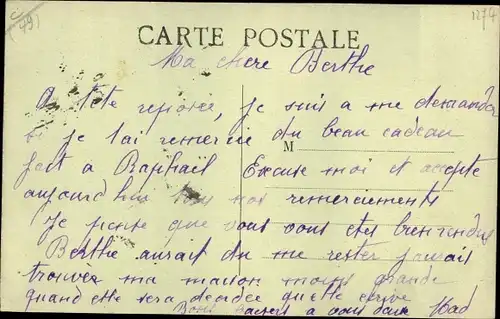 491
1274
CARTE POSTALE
Ma chere Berthe
A tête reposée, je suis a me demander
si je t'ai remercié du beau cadeau
M
fait a Raphaël Excuse moi et accepte
aujourd'hui tous nos remerciements
Je pense que vous vous etes bien rendus
Berthe aurait du me rester jamais
trouver ma maison moins grande
quand elle sera decidee qu'elle ecrive
Bons baisers a vous deux Mad